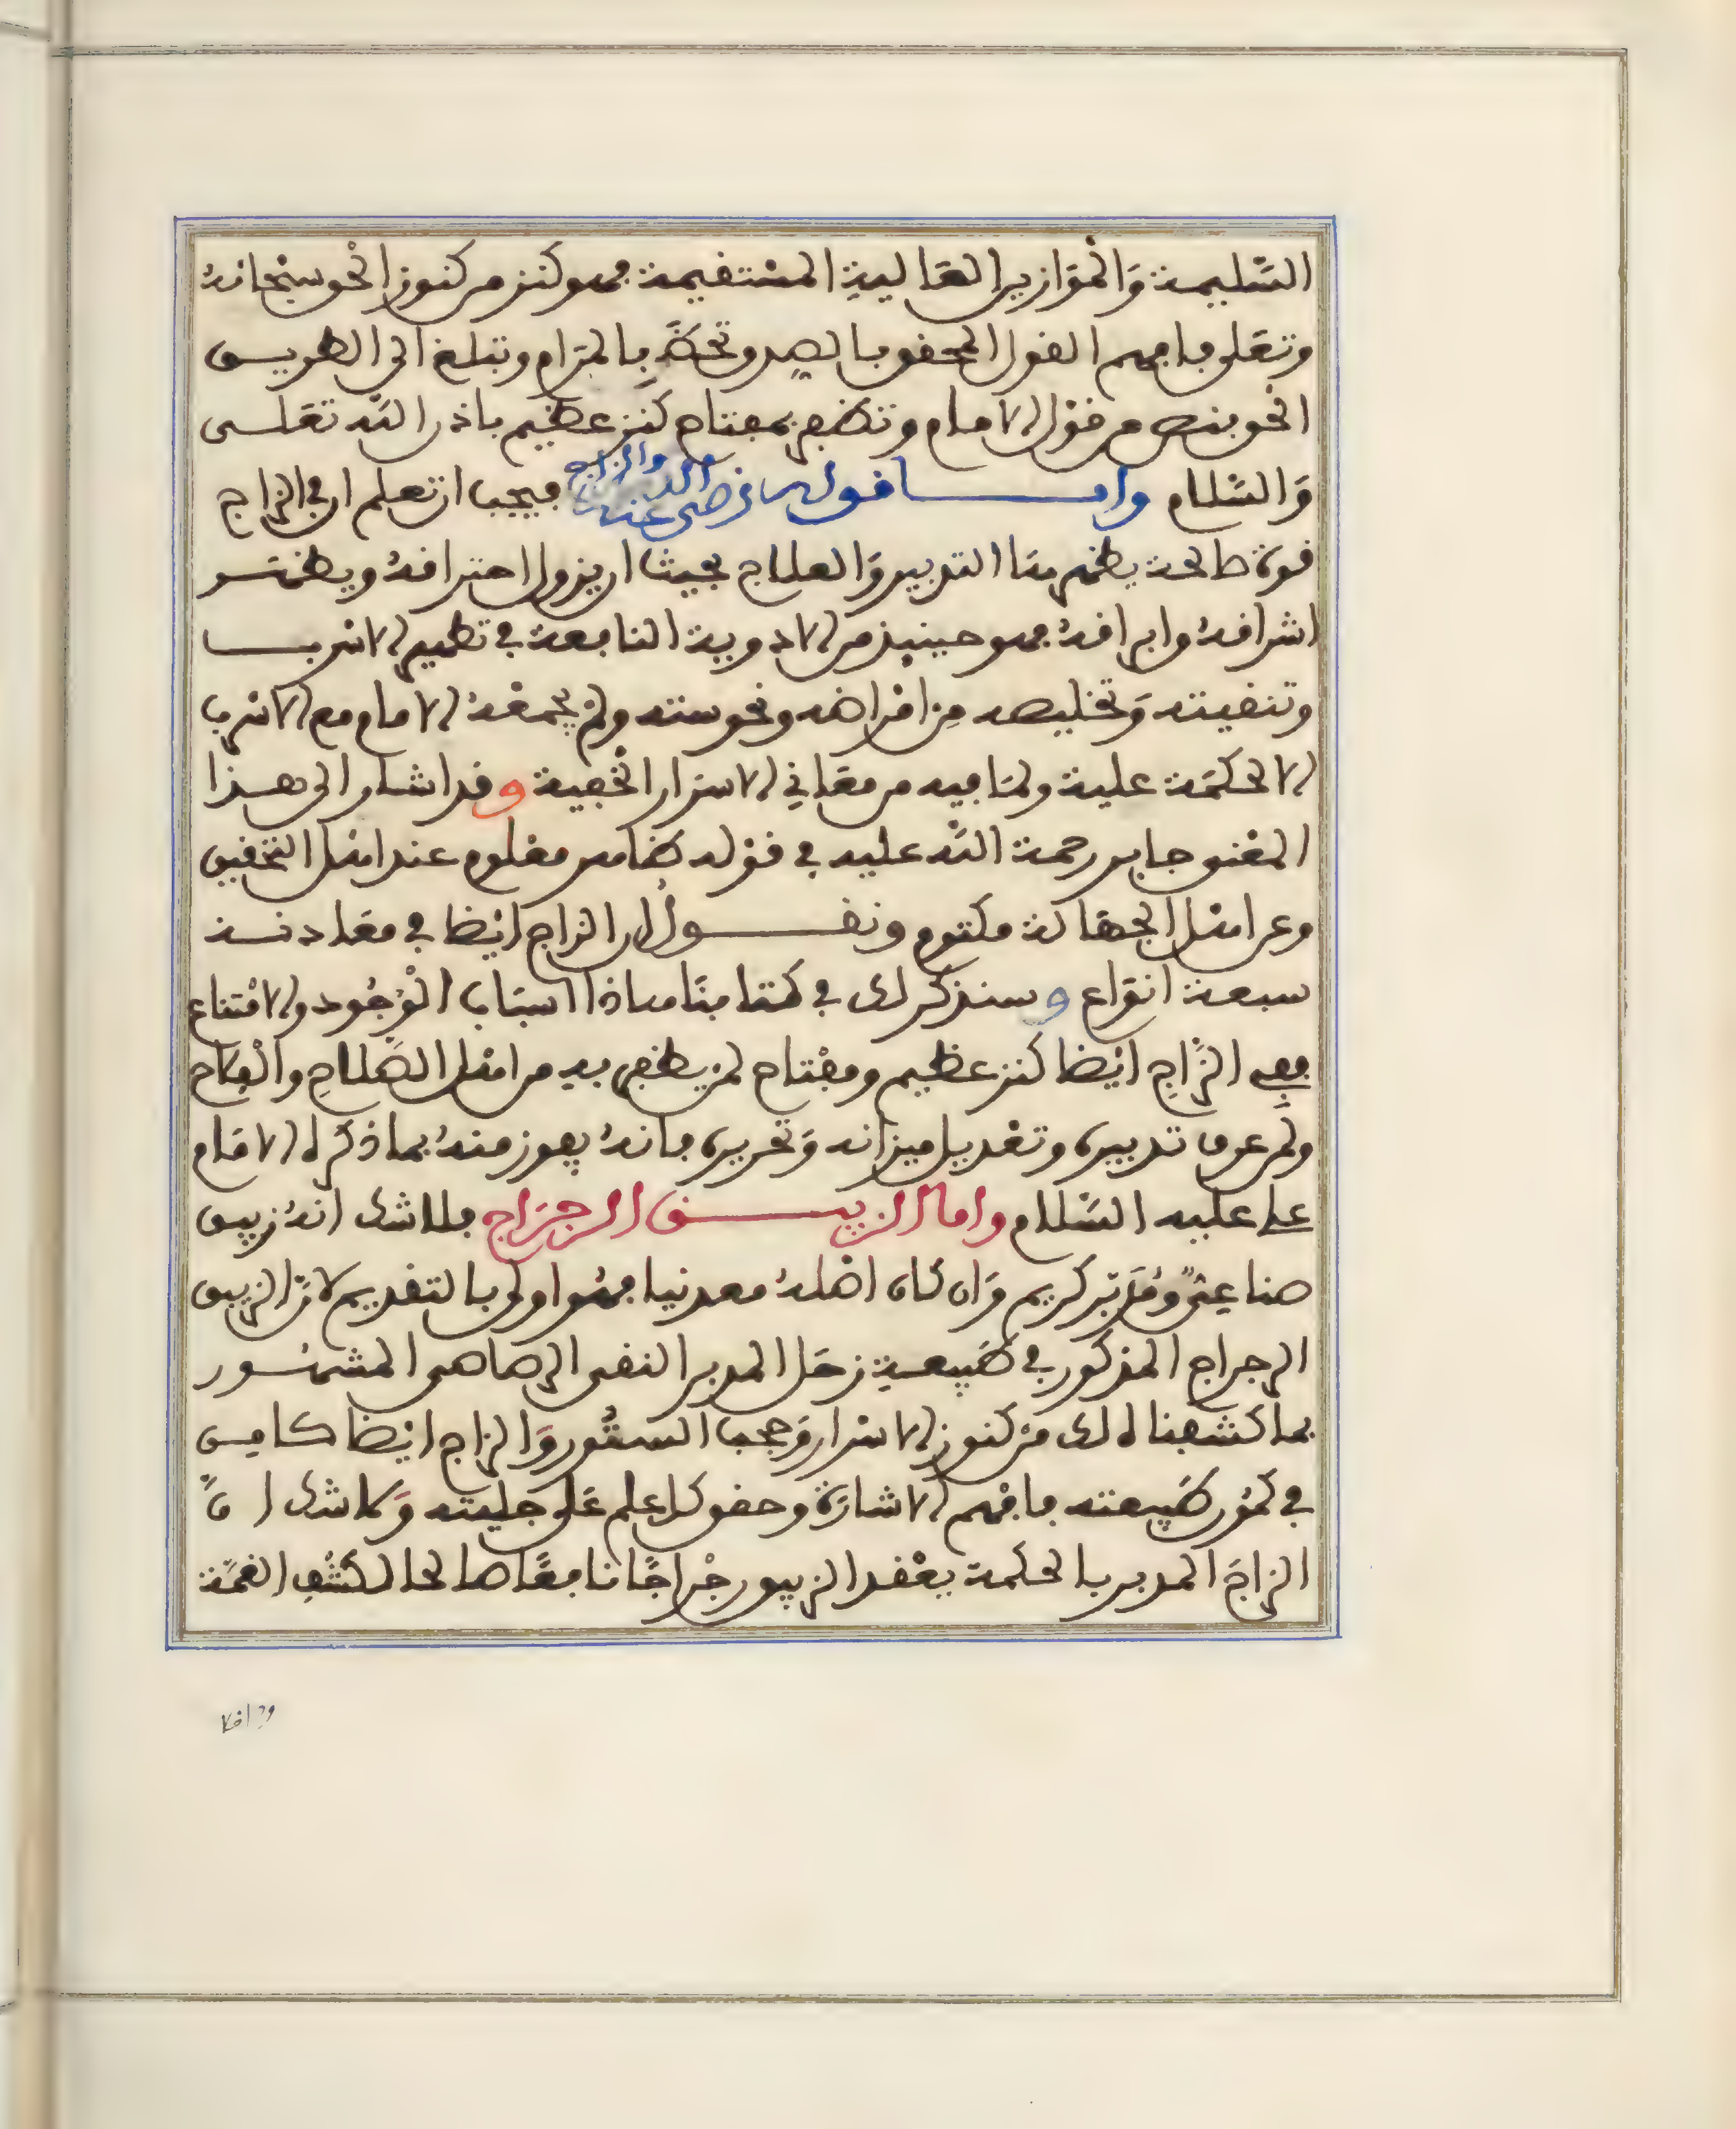 السّليمة وَالمْوَازين العَالية المسْتقيمة فهو كنز من كنوز الحْق سبْحانهُ
وتعَلى فافهم القول المحقق بالصدق تحظَ بِالمرَام وتبلغ الى الطريــق
الحْق بنص من قوْل الامام وتظفر بمفتاح كنز عظيم باذن اللّه تعَلــى
وَالسّلام وامــــا قوله رضي عنه والزاج فيجب ان تعلم ان في الزاج
قوة صالحة يظهرهَا التدبير وَالعلاج بحيث ان يزول احتراقهُ ويظهــر
اشراقهُ وابراقهُ فهو حينيذ من الادوية النافعة في تطهير الاسْربــ
وتنقيته وَتخليصه مِن امْراضه ونحوسته ولمْ يجْمعْهُ الامام مع الاسْرب
الا لحكمَة علية ولمَا فيه من معَاني الاسرَار الخْفية وقد اشار الى هذا
المعْنى جابر رحمة اللّه عليه في قوْله ظاهر معْلوم عند اهْل التحْقيق
وعن اهْل الجهَالة مكتوم ونقــــولُ ان الزاج ايْضا في معَادنــه
سبعة انوَاع وسنذكر لك في كتابنَا هاذا اسبَاب الْوُجُود والامْتناع
ففي الزَّاجِ ايْضا كنز عظيم ومفْتاح لمن يظفر به من اهْل الصَّلاحِ والْفلاح
ولمن عرف تدبيره وتعْديل ميزانه وَتحْريره فانهُ يفوز منهُ بما ذكره الامَام
علي عليه السّلام واما الزيبــــق الرجرَاج فلا شك انهُ زيبق
صناعِيٌّ وَمُدَبّر كريم وَان كان اصْلهُ معدنيا فهُو اولى بالتقديم لانّ الزيبق
الرجراج المذكور في طَبيعة زحَل المدبر النقي الرصاصي المشهُــور
بما كشفنا لك منْ كنوز الاسْرار وَحجب السُّتُور وَالزاج ايْضا كامِــن
في كمُون طَبيعته فافْهم الاشارَة وحقق كل علم عَلى جليته وَلا شك انَّ
الزاجَ المدبر بالحكمة يعْقد الزيبق رجْراجًا نافعًا صالحا لكشْفِ الغمَّة